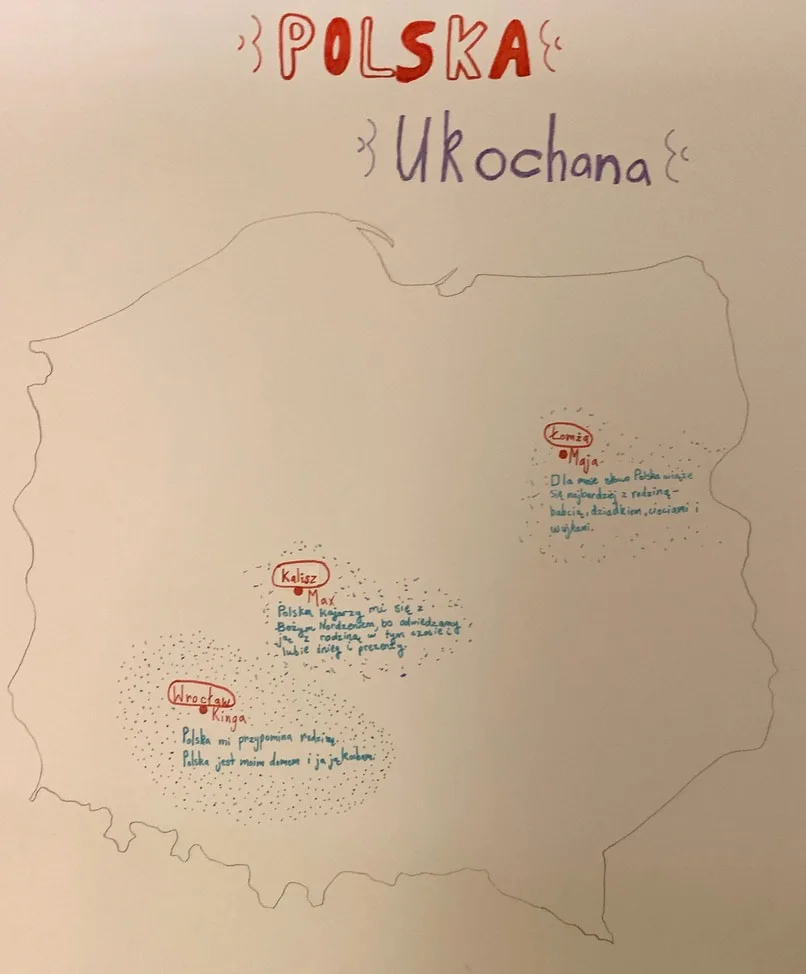 POLSKA
Ukochana
Łomża
Maja
Dla mnie słowo Polska wiąże
się najbardziej z rodziną -
babcią, dziadkiem, ciociami i
wujkami.
Kalisz
Max
Polska kojarzy mi się z
Bożym Nordzeniem, bo odwiedzamy
ją z rodziną w tym czasie i
lubię śnieg i prezenty.
Wrocław
Kinga
Polska mi przypomina rodzinę.
Polska jest moim domem i ja ją kocham.